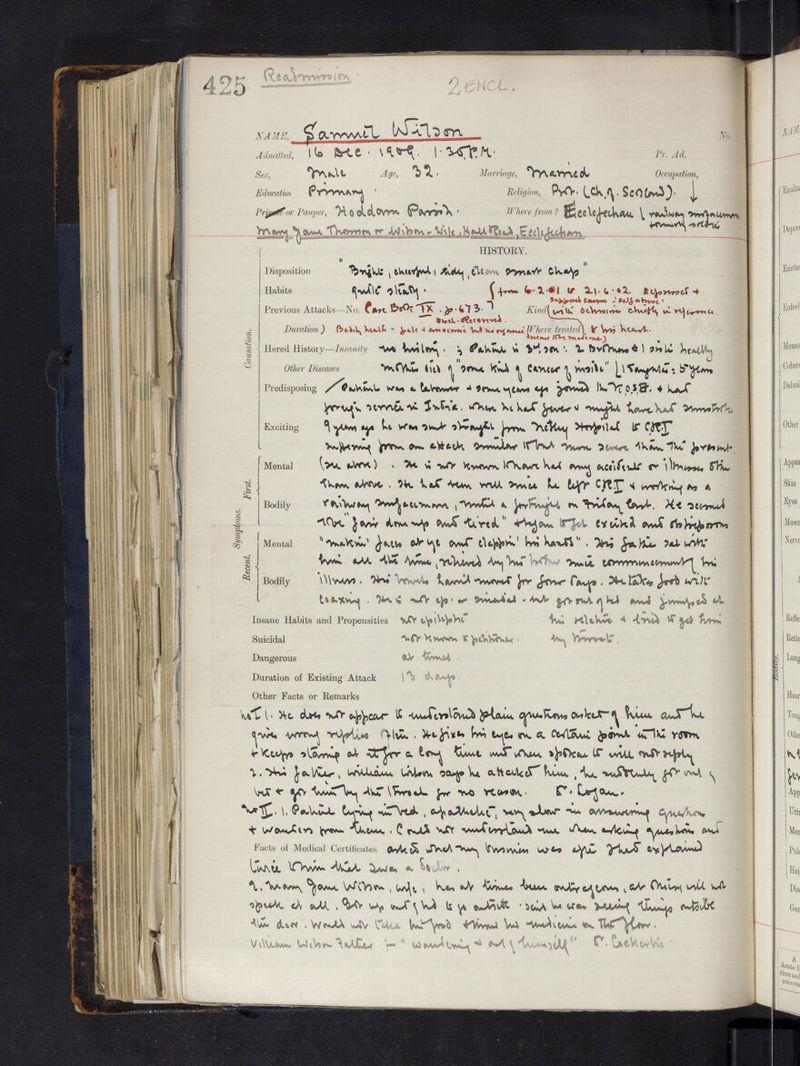 425 Readmission 2 ENCL.
NAME, Samuel Wilson No.
Admitted, 16 Dec. 1909. 1.35 P.M. Pr. Ad.
Sex, Male Age, 32. Marriage, Married Occupation,
Education Primary Religion, Prot. (Ch. of Scotland).
Private or Pauper, Hoddam Parish. Where from? Ecclefechan railway surfaceman
formerly soldier
Mary Jane Thomson or Wilson - Wife, Hall Road, Ecclefechan
HISTORY.
Disposition "Bright, cheerful, tidy, clean smart chap"
Habits quite steady. from 6.2.01 to 21.6.02.
Previous Attacks—No. Case Book IX. p. 673. Kind with delusions chiefly in reference
Disch-Recovered.
Duration) Bodily health - pale & anaemic but no organic Where treated to his heart.
Hered History—Insanity no history. Patient is 3rd son. 2 brothers & 1 sister healthy
Other Diseases mother died of "some kind of cancer of inside" 1 daughter: 5 years
Predisposing Patient was a labourer & some years ago joined the K.O.S.B. & had
foreign service in India. when he had fever & might have had sunstroke
Exciting 9 years ago he was sent straight from Netley Hospital to CRI
suffering from an attack similar to but more severe than the present.
Mental (see above). He is not known to have had any accidents or illnesses other
than above. He has been well since he left CRI & working as a
Bodily railway surfaceman, until a fortnight on Friday last. He seemed
"fair done up and tired" & began to get excited and obstreperous
Mental "makin' faces at ye and clappin' his hands". His father sat with
him all the time, relieved by his brother since commencement of his
Bodily illness. His bowels haven't moved for four days. He takes food with
coaxing. He is not ep. or suicidal - but got out of bed and jumped at
Insane Habits and Propensities not epileptic his relative & tried to get him
Suicidal not known to be by throat.
Dangerous at times.
Duration of Existing Attack 13 days.
Other Facts or Remarks
No I. 1. He does not appear to understand plain questions asked of him and he
gives wrong replies to them. He fixes his eyes on a certain point in the room
& keeps staring at it for a long time and when spoken to will not reply
2. His father, William Wilson says he attacked him, he suddenly got out of
bed & got him by the throat for no reason. Logan.
No II. 1. Patient lying in bed, apathetic, very slow in answering questions
& wanders from them. Could not understand me when asking questions and
Facts of Medical Certificates asked what my business was after I had explained
twice to him that I was a doctor.
2. Mary Jane Wilson, wife, has at times been outrageous, at others will not
speak at all. Got up and tried to go outside said he was seeing things outside
the door. Would not take his food & threw his medicine on the floor.
William Wilson Father - "wandering & out of himself" Lockerbie
Causation.
Symptoms.
First.
Recent.